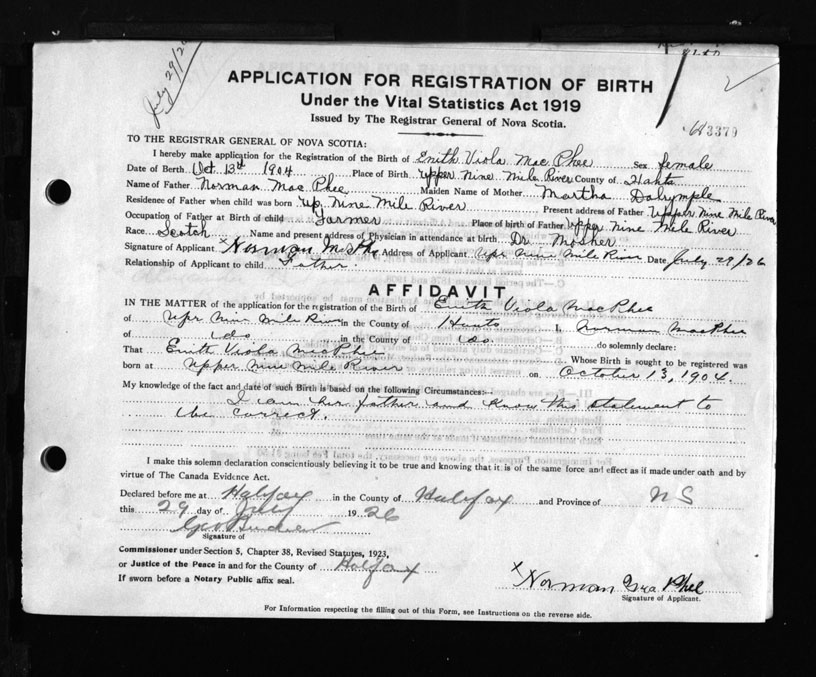 July 29/26
APPLICATION FOR REGISTRATION OF BIRTH
Under the Vital Statistics Act 1919
Issued by The Registrar General of Nova Scotia.
3379
TO THE REGISTRAR GENERAL OF NOVA SCOTIA:
I hereby make application for the Registration of the Birth of Enith Viola MacPhee Sex female
Date of Birth Oct 13th 1904 Place of Birth Upper Nine Mile River County of Hants
Name of Father Norman MacPhee Maiden Name of Mother Martha Dalrymple
Residence of Father when child was born Up Nine Mile River Present address of Father Upper Nine Mile River
Occupation of Father at Birth of child Farmer Place of birth of Father Upper Nine Mile River
Race Scotch Name and present address of Physician in attendance at birth Dr Mosher
Signature of Applicant x Norman McPhe Address of Applicant Upr Nine Mile River Date July 29/26
Relationship of Applicant to child Father.
AFFIDAVIT
IN THE MATTER of the application for the registration of the Birth of Enith Viola MacPhee
of Upr Nine Mile River in the County of Hants I, Norman MacPhee
of do in the County of do do solemnly declare:
That Enith Viola MacPhee Whose Birth is sought to be registered was
born at Upper Nine Mile River on October 13, 1904.
My knowledge of the fact and date of such Birth is based on the following Circumstances:-
I am her father and know this statement to
be correct.
I make this solemn declaration conscientiously believing it to be true and knowing that it is of the same force and effect as if made under oath and by
virtue of The Canada Evidence Act.
Declared before me at Halifax in the County of Halifax and Province of N S
this 29 day of July 1926
Geo
Signature of
Commissioner under Section 5, Chapter 38, Revised Statutes, 1923,
or Justice of the Peace in and for the County of Halifax
If sworn before a Notary Public affix seal.
x Norman Mra Phee
Signature of Applicant.
For Information respecting the filling out of this Form, see Instructions on the reverse side.